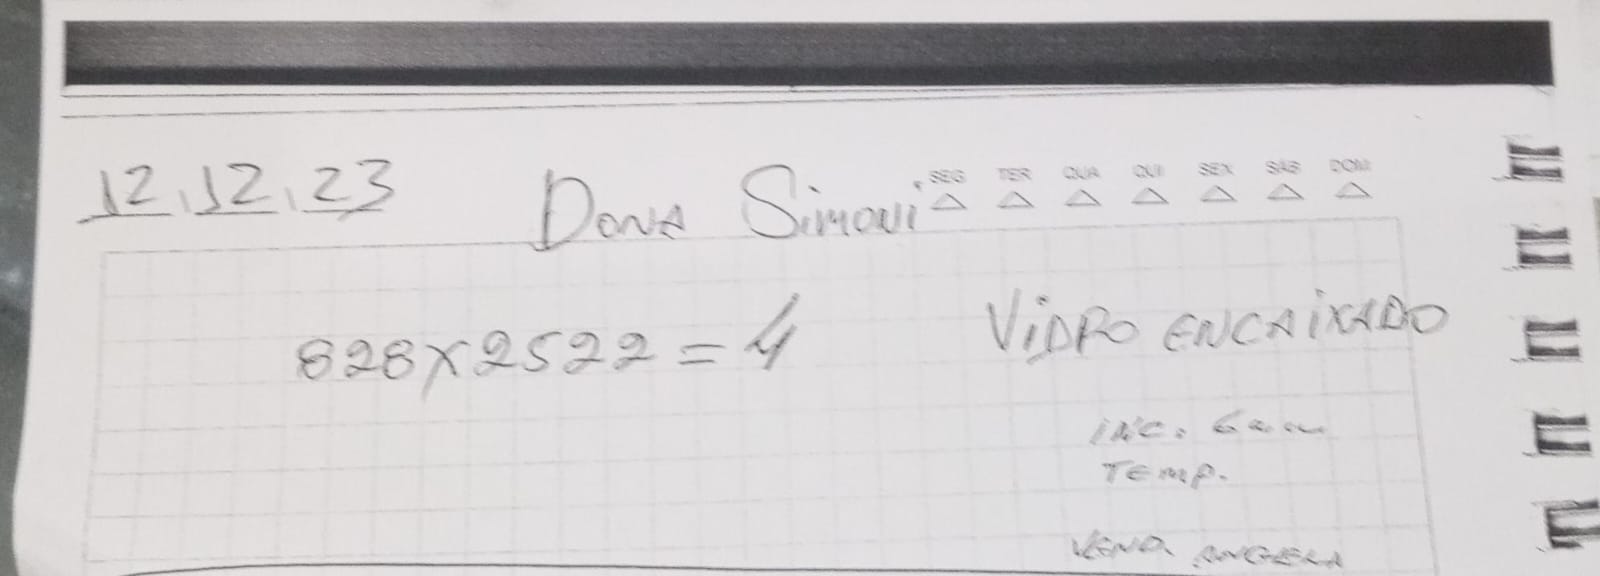 12.12.23 Dona Simoni SEG TER QUA QUI SEX SÁB DOM
828x2522=4 VIDRO ENCAIXADO
INC. 6mm
TEMP.
VEND. ANGELA